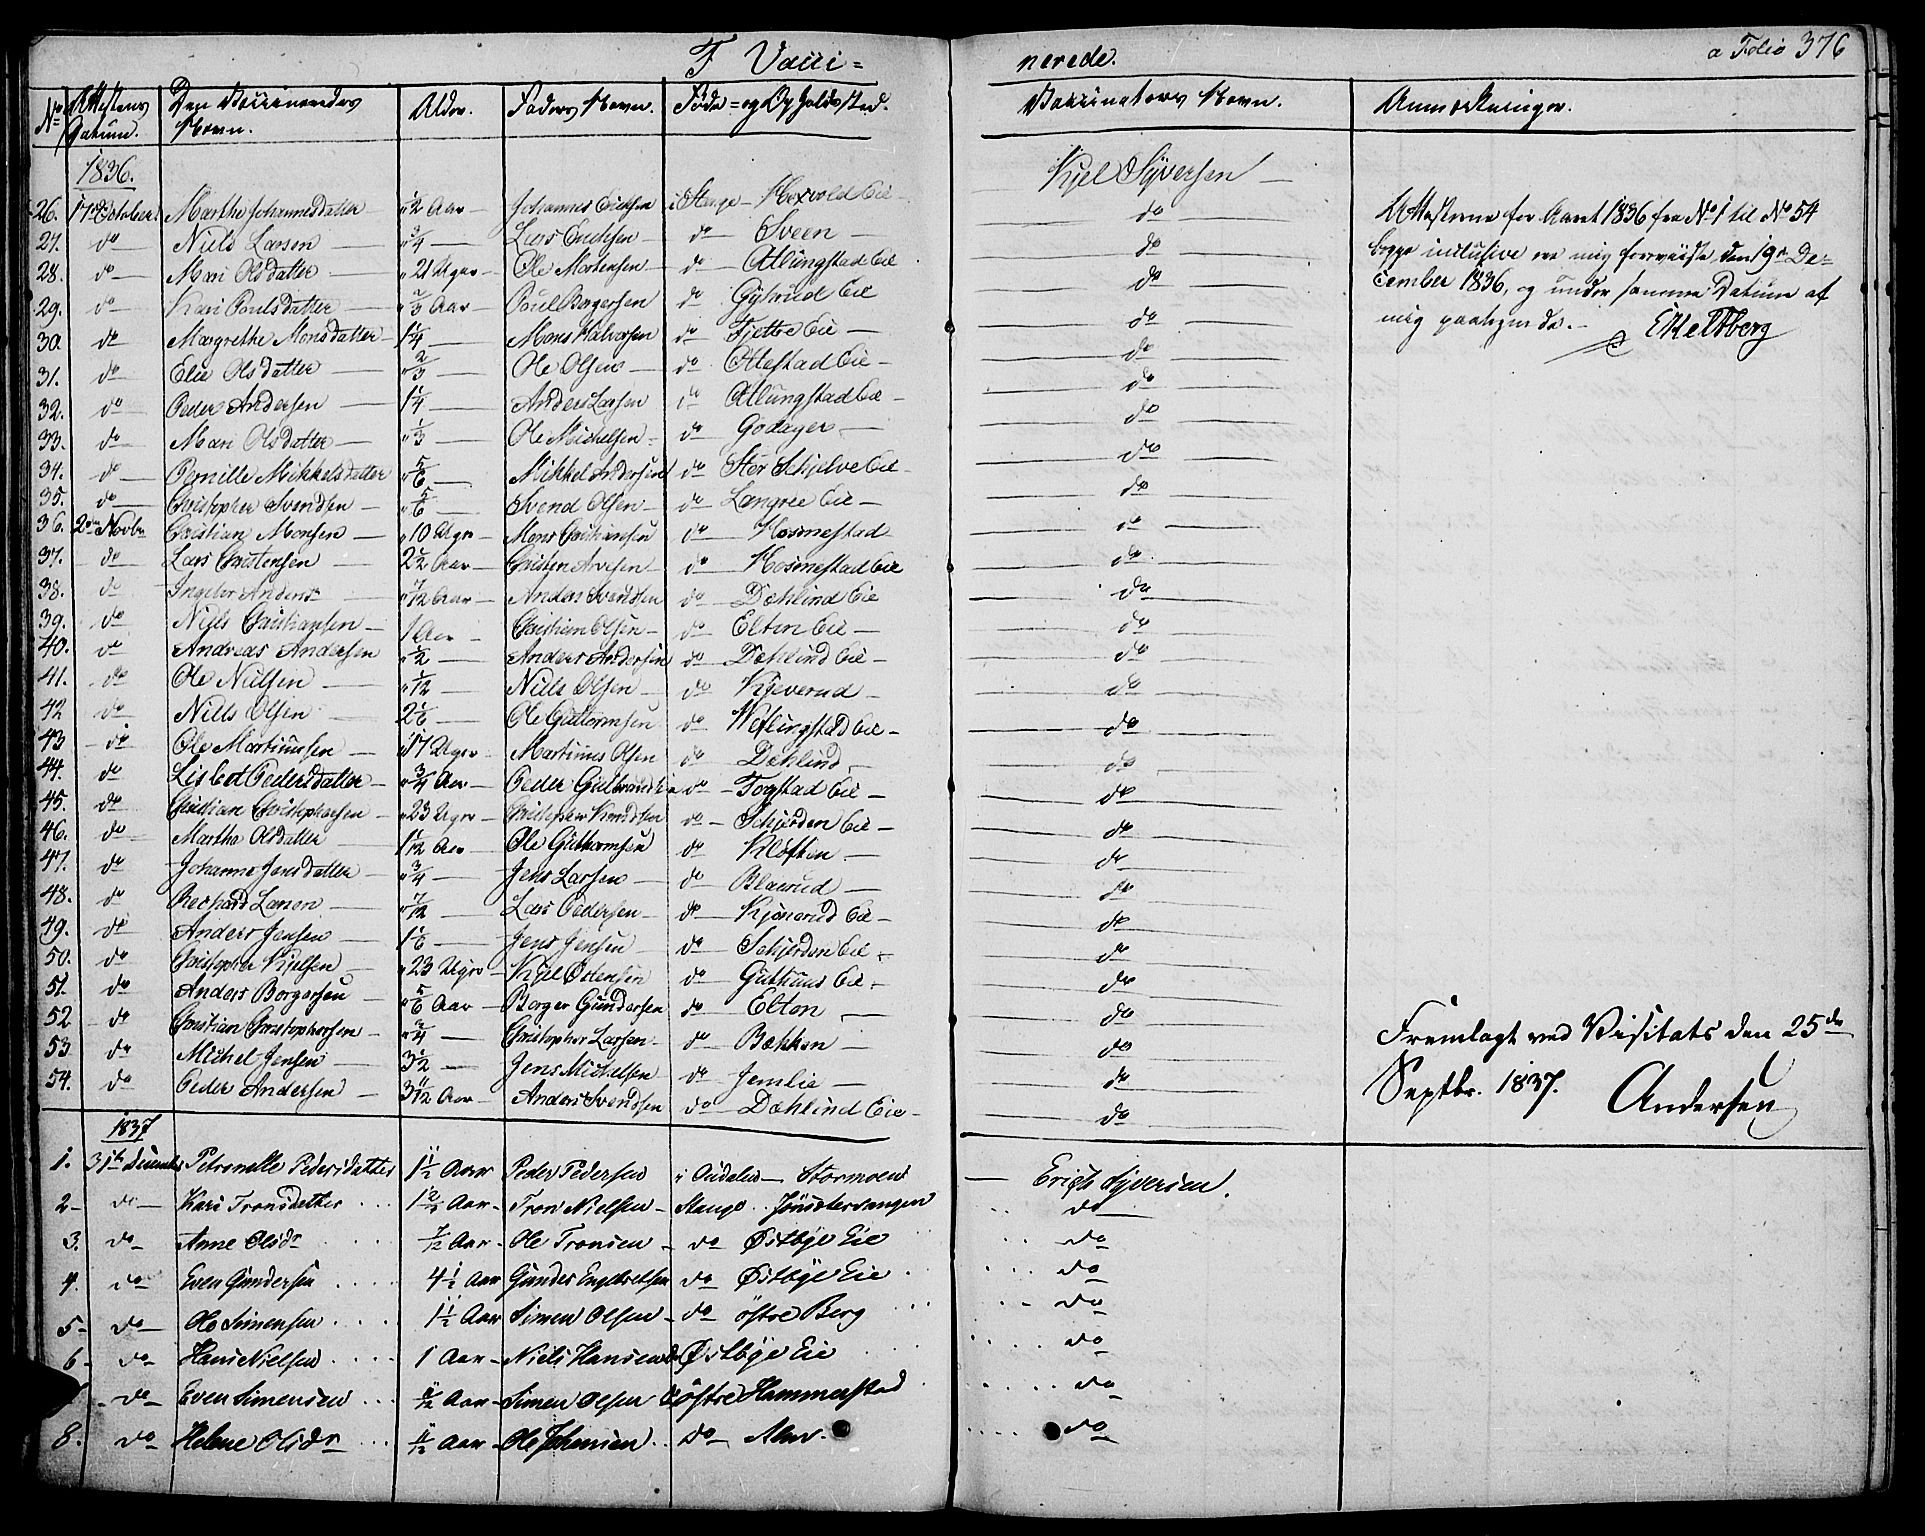 F Vacci=
nerede.
a Folio 376
No Attestens Datum. Den Vaccineredes Navn. Alder. Faders Navn. Føde= og Opholdssted. Vaccinateurs Navn. Anmærkninger.
1836.
26. 17de October Marthe Johannesdatter 2 Aar Johannes Erichsen i Stange Eie Kjel Syversen
27. do Niels Larsen 3/4 Lars Erichsen do Sveen do
28. do Mari Olsdatter 21 Uger Ole Mortensen do Atlungstad Eie do
29. do Kari Poulsdatter 2/3 Aar Poul Borgersen do Gytrud Eie do
30. do Margrethe Monsdatter 1 1/4 Mons Halvorsen do Tjette Eie do
31. do Elie Olsdatter 2/3 Ole Olsen do Ottestad Eie do
32. do Peder Andersen 1 1/4 Anders Larsen do Atlungstad Eie do
33. do Mari Olsdatter 1/3 Ole Michelsen do Godager do
34. do Pernille Mikkelsdatter 5/6 Mikkel Andersen do Stor Schjelve Eie do
35. do Christopher Svendsen 5/6 Svend Olsen do Langree Eie do
36. 2den Novbr Christian Monsen 10 Uger Mons Christiansen do Hosmestad do
37. do Lars Christensen 2 1/2 Aar Christen Arnesen do Hosmestad Eie do
38. do Ingebor Andersdr 7/12 Aar Anders Svendsen do Dæhlind Eie do
39. do Niels Christiansen 1 Aar Christian Olsen do Elton Eie do
40. do Andreas Andersen 1/2 Anders Andersen do Dæhlind Eie do
41. do Ole Nielsen /12 Niels Olsen do Kjeverud do
42 do Niels Olsen 2 1/6 Ole Guttormsen do Weflingstad Eie do
43 do Ole Martinusen 17 Uger Martinus Olsen do Dæhlind do
44. do Lisbet Pedersdatter 3/4 Aar Peder Gulbrandsen do Fogstad Eie do
45. do Christian Christophersen 23 Uger Christopher Knudsen do Schjerden Eie do
46. do Marthe Olsdatter 1 1/12 Aar Ole Guttormsen do Kløften do
47. do Johanne Jensdatter 3/4 Jens Larsen do Blaerud do
48. do Rechard Larsen 7/12 Lars Pedersen do Kjonerud Eie do
49. do Anders Jensen 1 1/6 Jens Jensen do Schjerden Eie do
50. do Christopher Kjelsen 23 Uger Kjel Ostensen do Guttrud Eie do
51. do Anders Borgersen 5/6 Aar Borger Gundersen do Elton do
52 do Christian Christophersen 3/4 Christopher Larsen do Bækken do
53. do Michel Jensen 3 1/2 Jens Michelsen do Jemlie do
54. do Peder Andersen 3 /12 Aar Anders Svendsen do Dæhlind Eie do
Attesterne for Aaret 1836 fra No 1 til No 54
begge inclusive ere mig foreviiste den 19de De=
cember 1836, og under samme Datum af
mig paategnede.
E Keltberg
Fremlagt ved Visitats den 25de
Septbr. 1837. Andersen
1837
1. 31te December Petronelle Pedersdatter 1 1/2 Aar Peder Pedersen i Stormoen Erich Syversen.
2 do Kari Tronsdatter 1 Aar Tron Nielsen Stange do
3. do Anne Olsdr 7/12 Aar Ole Tronsen do Østbye Eie do
4. do Even Gundersen 4 1/2 Aar Gunder Engebretsen do Østbye Eie do
5 do Ole Simensen 1 1/2 Aar Simen Olsen do østre Berg do
6 do Hans Nielsen 1 Aar Niels Hansen do Østbye Eie do
do Even Simensen /12 Aar Simen Olsen do østre Hammerstad do
8. do Helene Olsdr 11/12 Aar Ole Johnsen do do